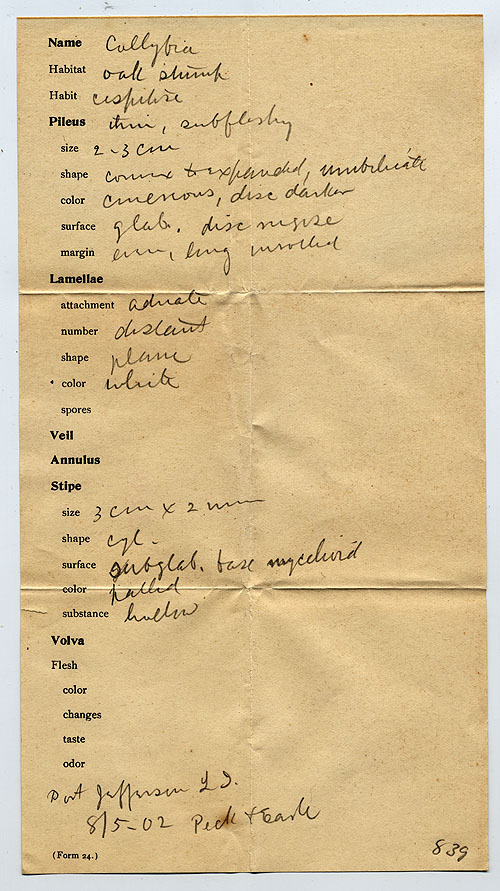 Name Collybia
Habitat oak stump
Habit cespitose
Pileus thin, subfleshy
size 2-3 cm
shape convex to expanded, umbilicate
color cinereous, disc darker
surface glab. disc rugose
margin even, long inrolled
Lamellae
attachment adnate
number distant
shape plane
color white
spores
Veil
Annulus
Stipe
size 3 cm x 2 mm
shape cyl.
surface subglab. base mycelioid
color pallid
substance hollow
Volva
Flesh
color
changes
taste
odor
Port Jefferson L I.
8/5-02 Peck + Earle
(Form 24.)
839